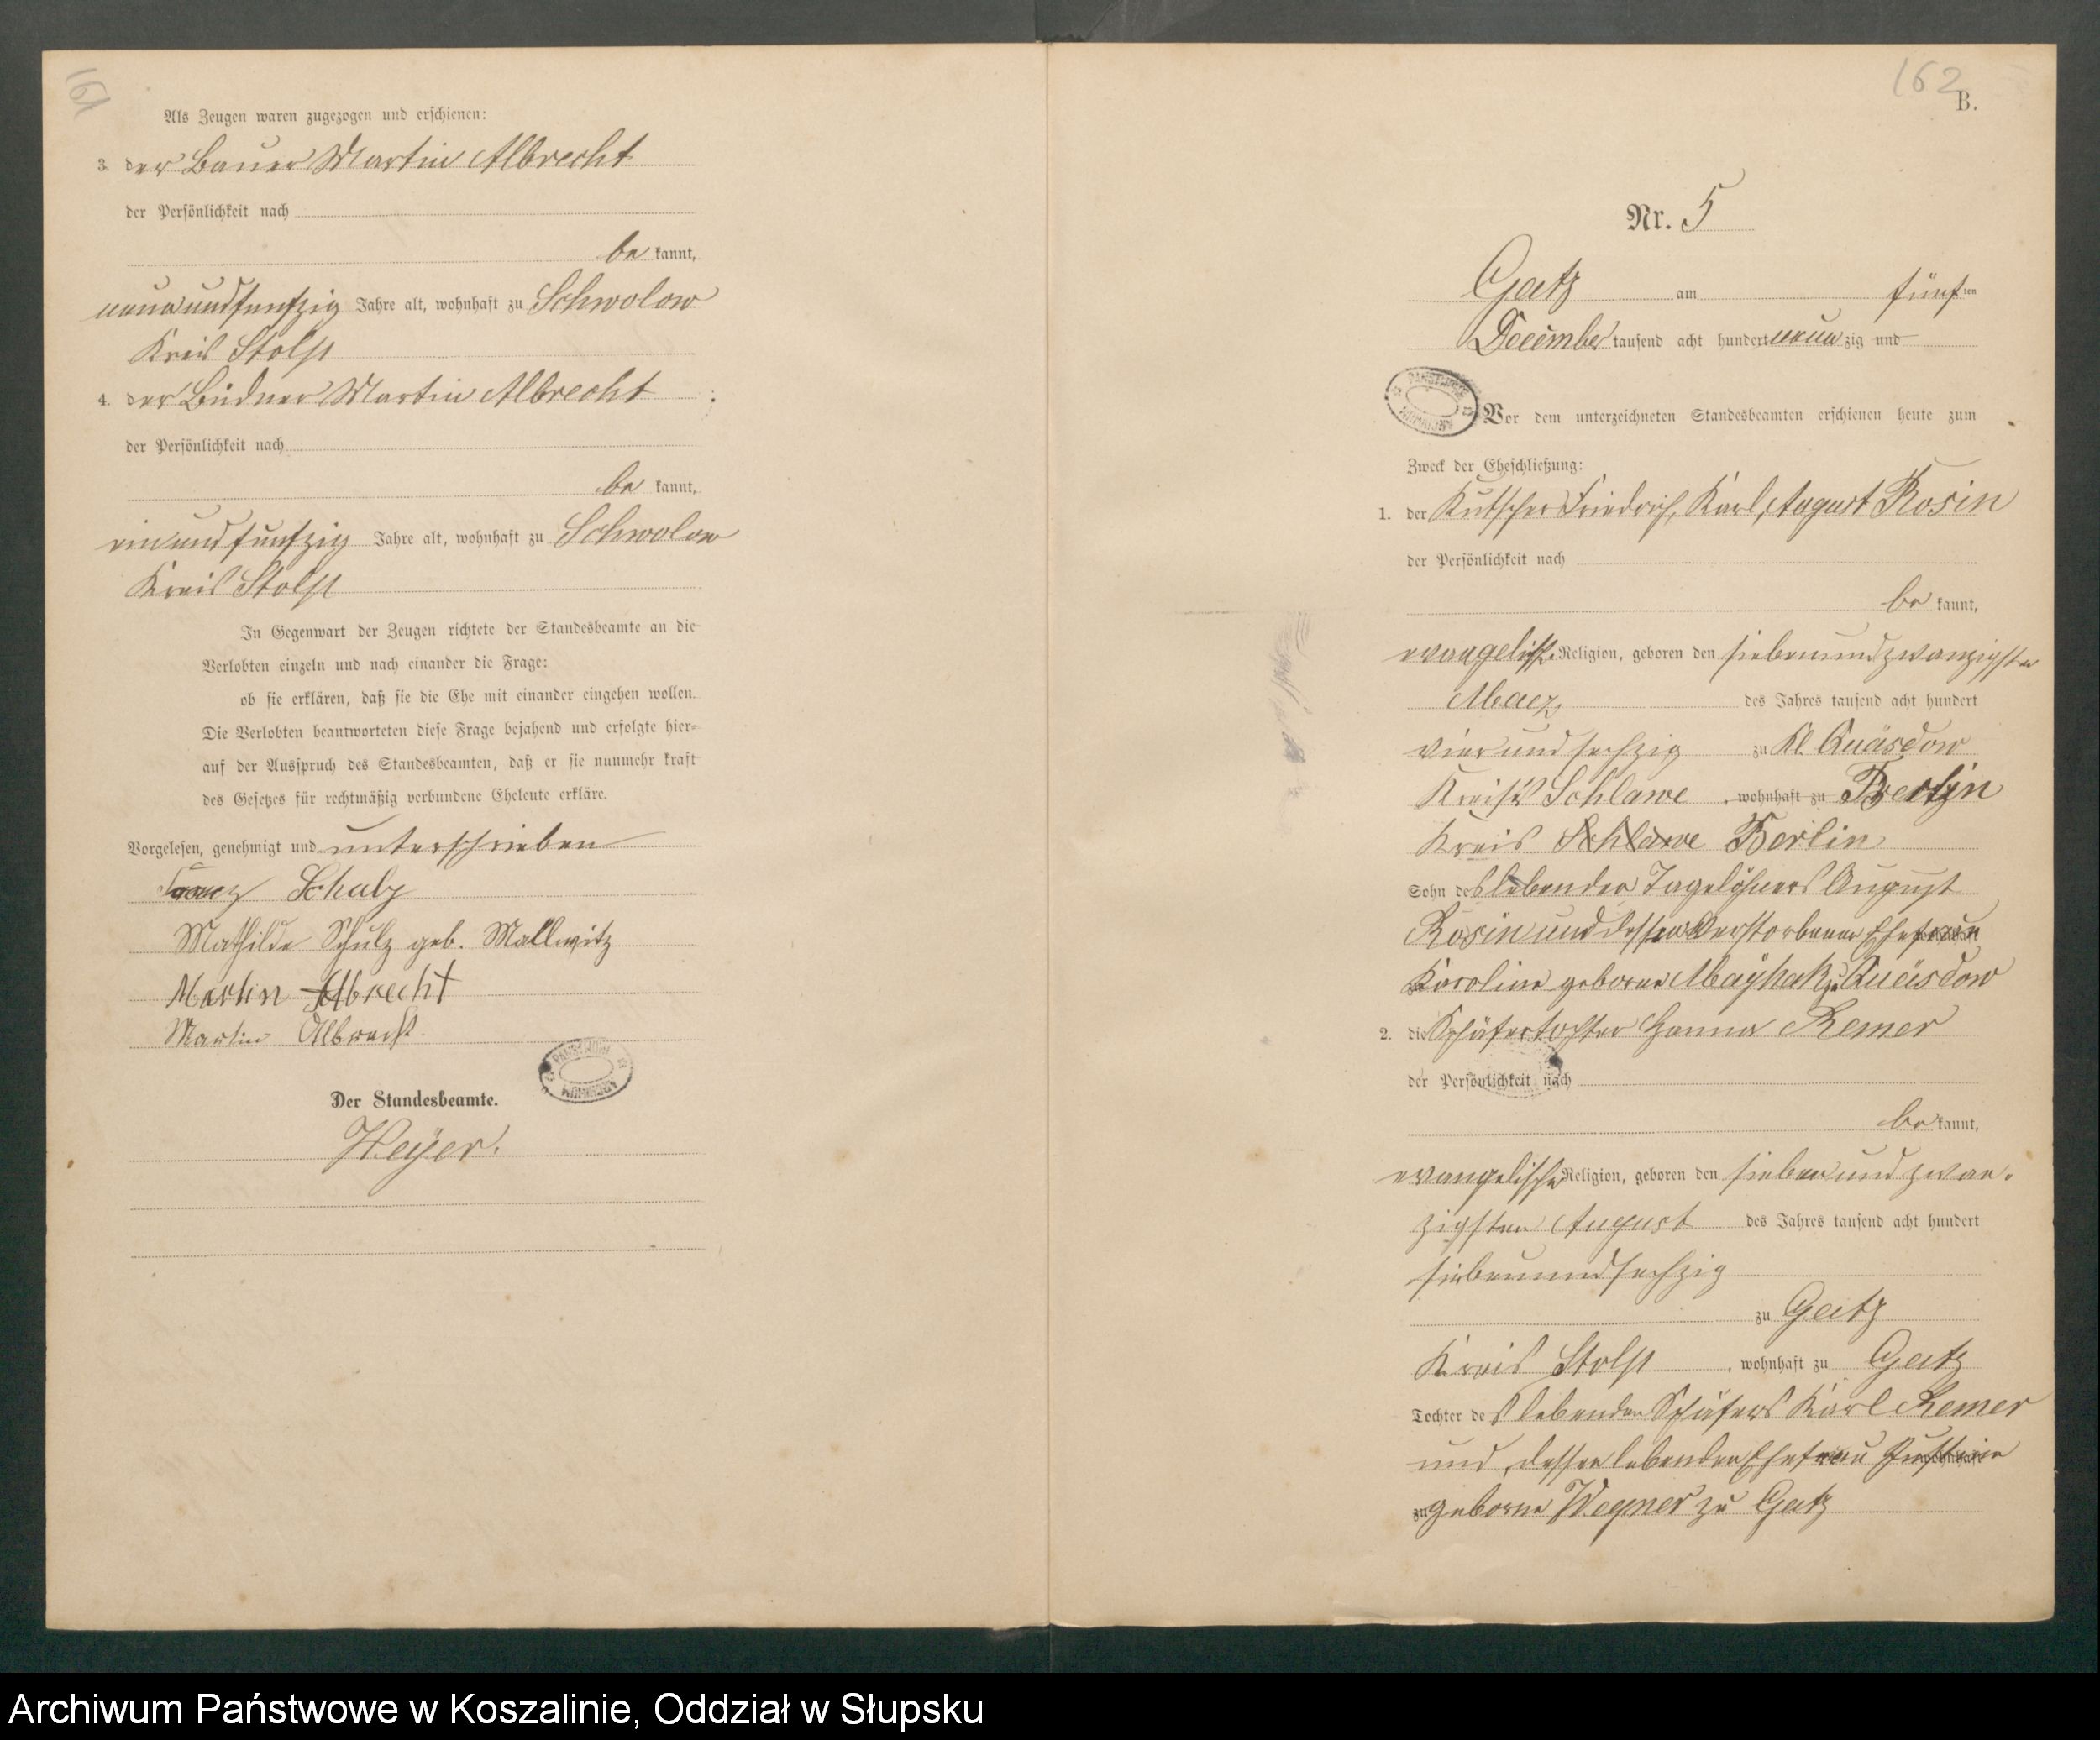 161
Als Zeugen waren zugezogen und erschienen:
3. der Bauer Martin Albrecht
der Persönlichkeit nach
be kannt,
neunundfunfzig Jahre alt, wohnhaft zu Schwolow
Kreis Stolp
4. der Büdner Martin Albrecht
der Persönlichkeit nach
be kannt,
einundfunfzig Jahre alt, wohnhaft zu Schwolow
Kreis Stolp
In Gegenwart der Zeugen richtete der Standesbeamte an die
Verlobten einzeln und nach einander die Frage:
ob sie erklären, daß sie die Ehe mit einander eingehen wollen.
Die Verlobten beantworteten diese Frage bejahend und erfolgte hier=
auf der Ausspruch des Standesbeamten, daß er sie nunmehr kraft
des Gesetzes für rechtmäßig verbundene Eheleute erkläre.
Vorgelesen, genehmigt und unterschrieben
Schulz
Mathilde Schulz geb. Mallwitz
Martin Albrecht
Martin Albrecht
Der Standesbeamte.
Weyer.
162
B.
Nr. 5
Gatz am fünften
December tausend acht hundert neun zig und
Vor dem unterzeichneten Standesbeamten erschienen heute zum
Zweck der Eheschließung:
1. der Kutscher Friedrich, Karl, August Rosin
der Persönlichkeit nach
be kannt,
evangelischer Religion, geboren den siebenundzwanzigsten
Maerz des Jahres tausend acht hundert
vierundsechzig zu Kl. Quäsdow
Kreises Schlawe, wohnhaft zu Berlin
Kreis Schlawe Berlin
Sohn des lebenden Tagelöhners August
Rosin und dessen verstorbenen Ehefrau
Karoline geborne Mayhak zu Quäsdow
2. die Schäfertochter Hanna Remer
der Persönlichkeit nach
be kannt,
evangelischer Religion, geboren den siebenundzwan-
zigsten August des Jahres tausend acht hundert
siebenundsechzig
zu Gatz
Kreis Stolp, wohnhaft zu Gatz
Tochter des lebenden Schäfers Karl Remer
und dessen lebenden Ehefrau Justine
zu geborne Wegner zu Gatz
Archiwum Państwowe w Koszalinie, Oddział w Słupsku